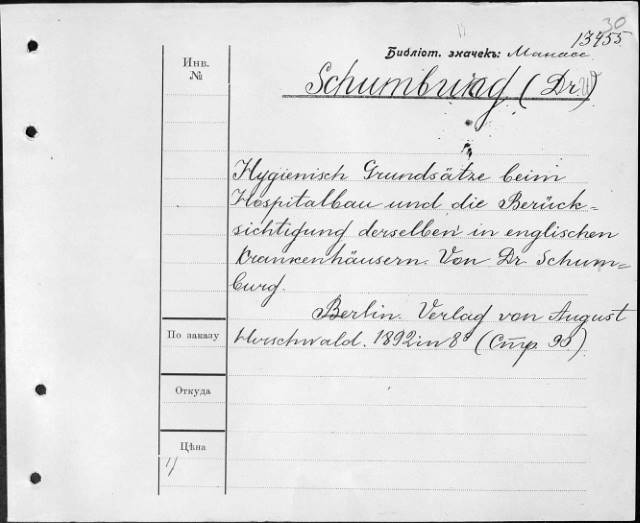 30
13455
Библіот. значекъ: Манасс
Инв.
№
Schumburg (Dr. W)
Hygienisch Grundsätze beim
Hospitalbau und die Berück=
sichtigung derselben in englischen
Krankenhäusern. Von Dr. Schum=
burg.
Berlin. Verlag von August
Hirschwald. 1892 in 8° (Стр. 90)
По заказу
Откуда
Цѣна